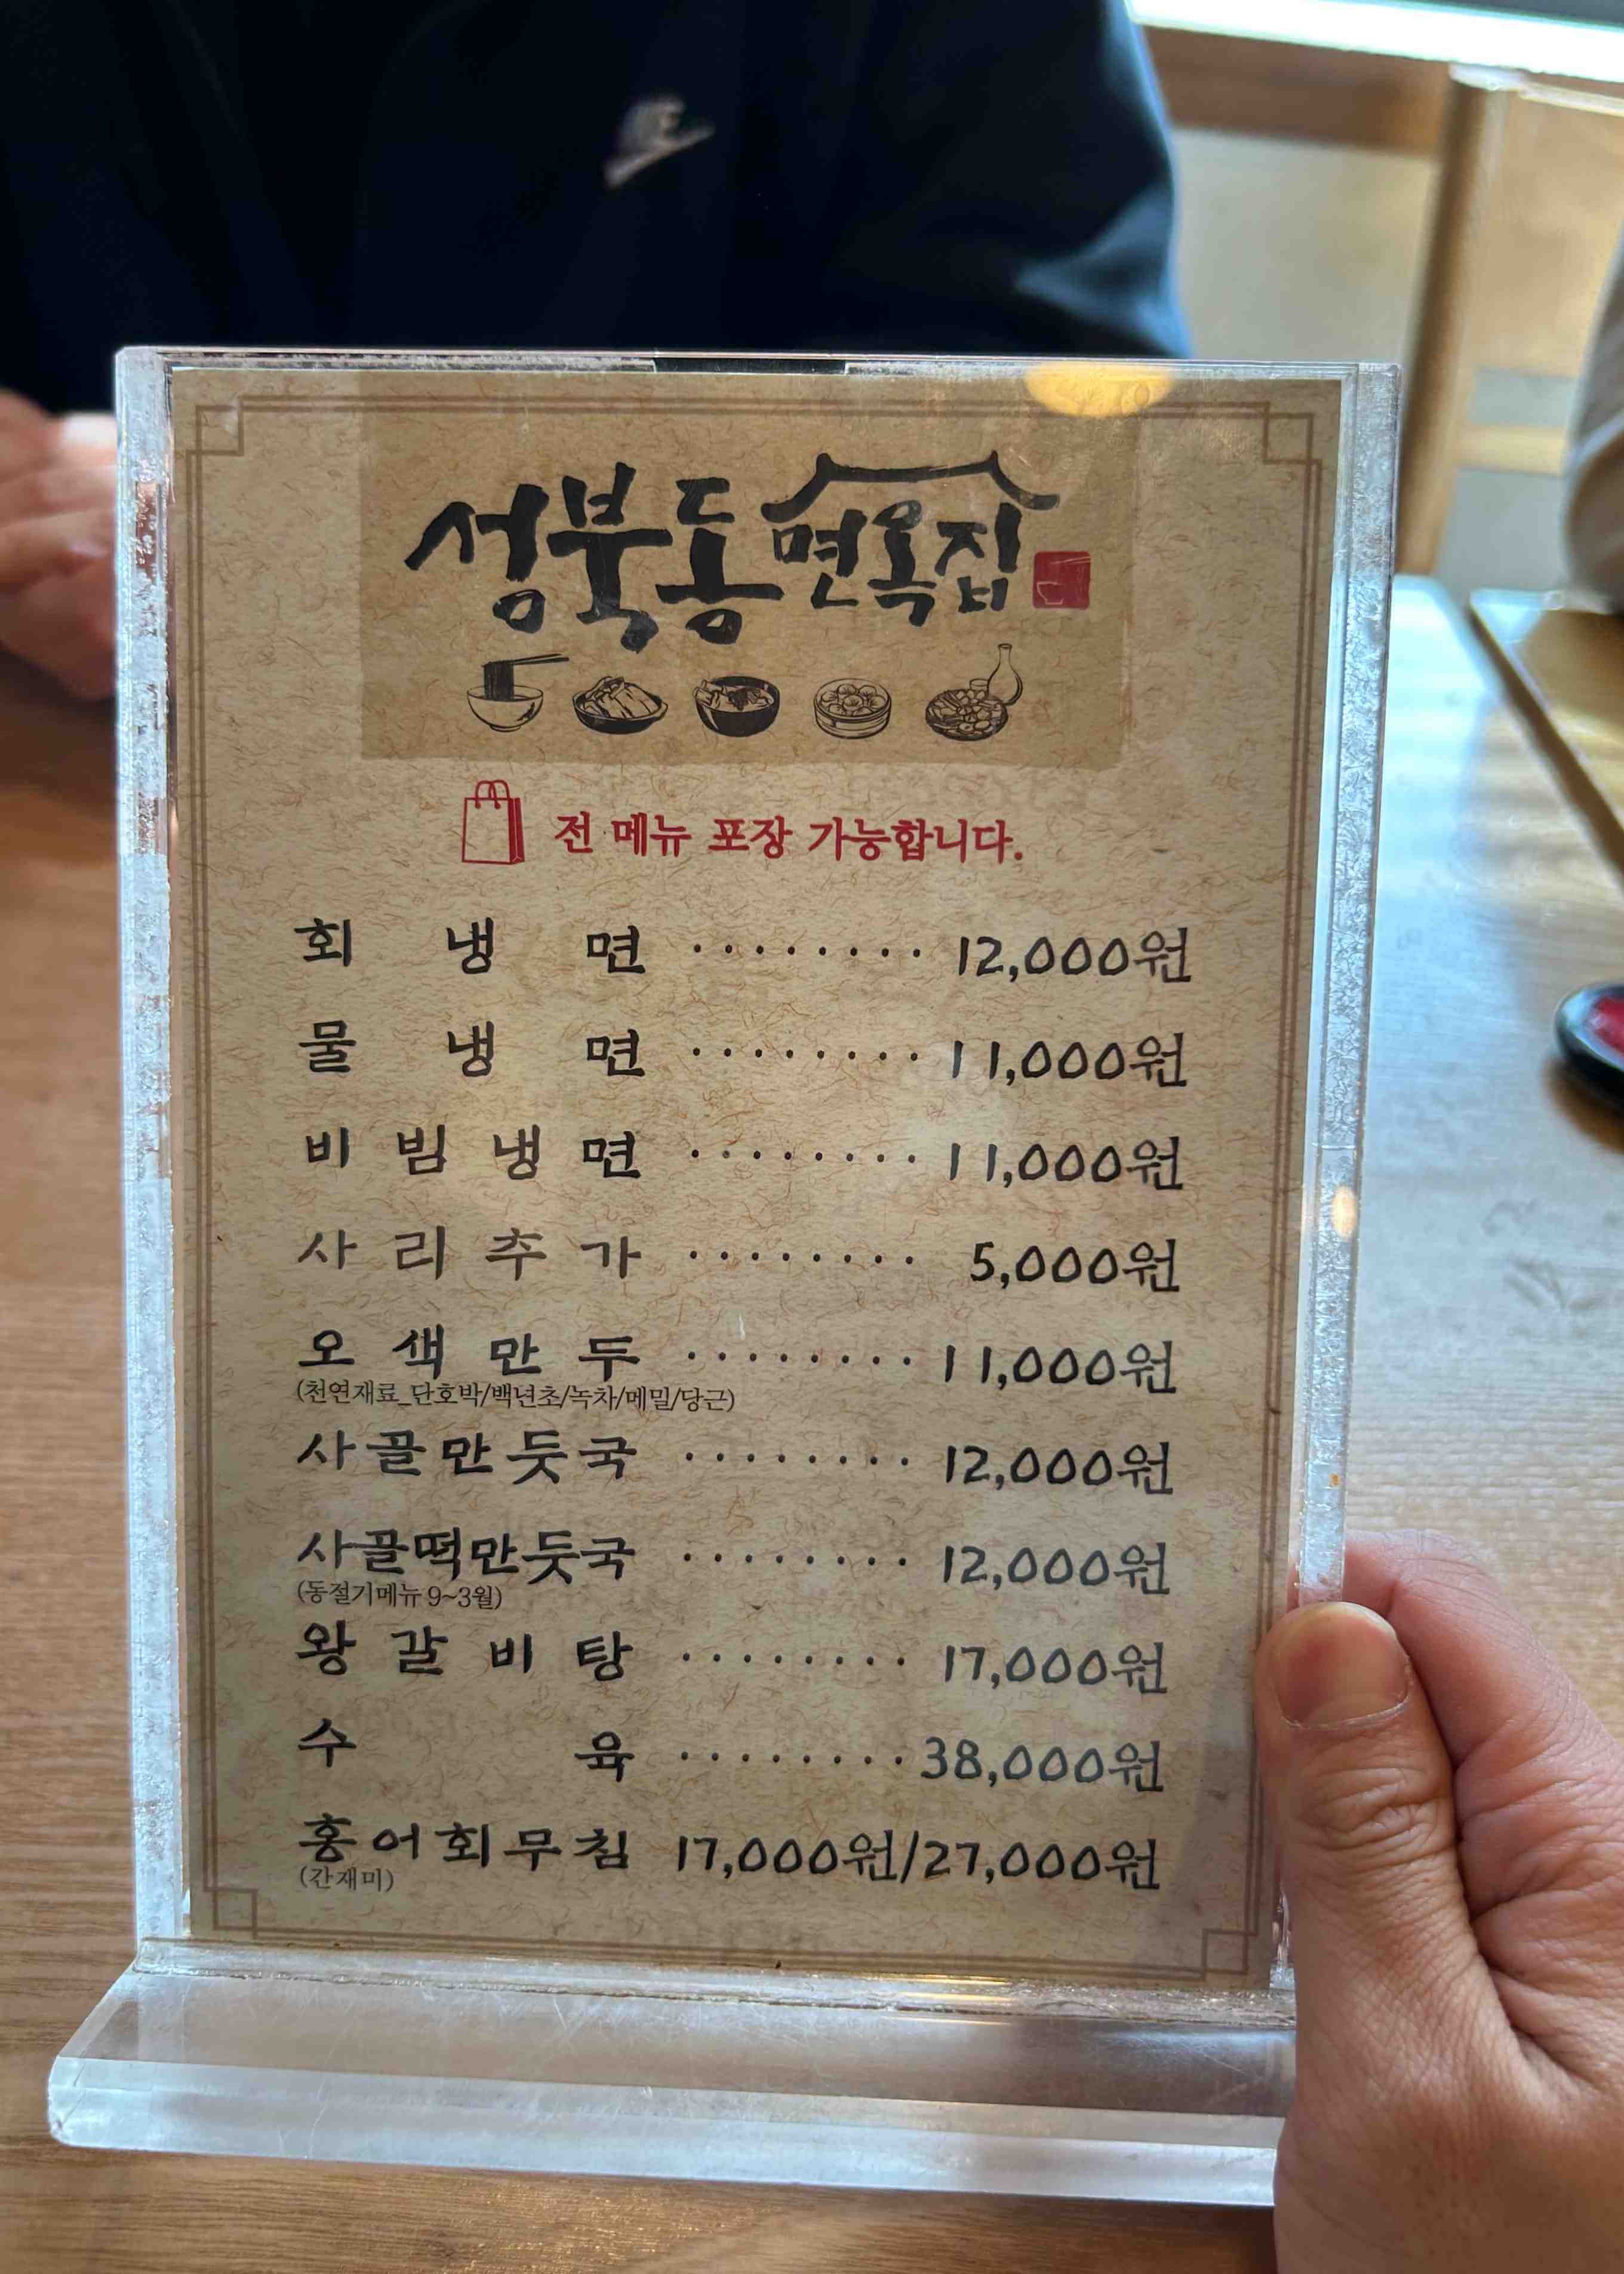 성북동면옥집
전 메뉴 포장 가능합니다.
회냉면 ········ 12,000원
물냉면 ········ 11,000원
비빔냉면 ········ 11,000원
사리추가 ········ 5,000원
오색만두 ········ 11,000원
(천연재료_단호박/백년초/녹차/메밀/당근)
사골만둣국 ········ 12,000원
사골떡만둣국 ········ 12,000원
(동절기메뉴 9~3월)
왕갈비탕 ········ 17,000원
수육 ········ 38,000원
홍어회무침 17,000원/27,000원
(간재미)